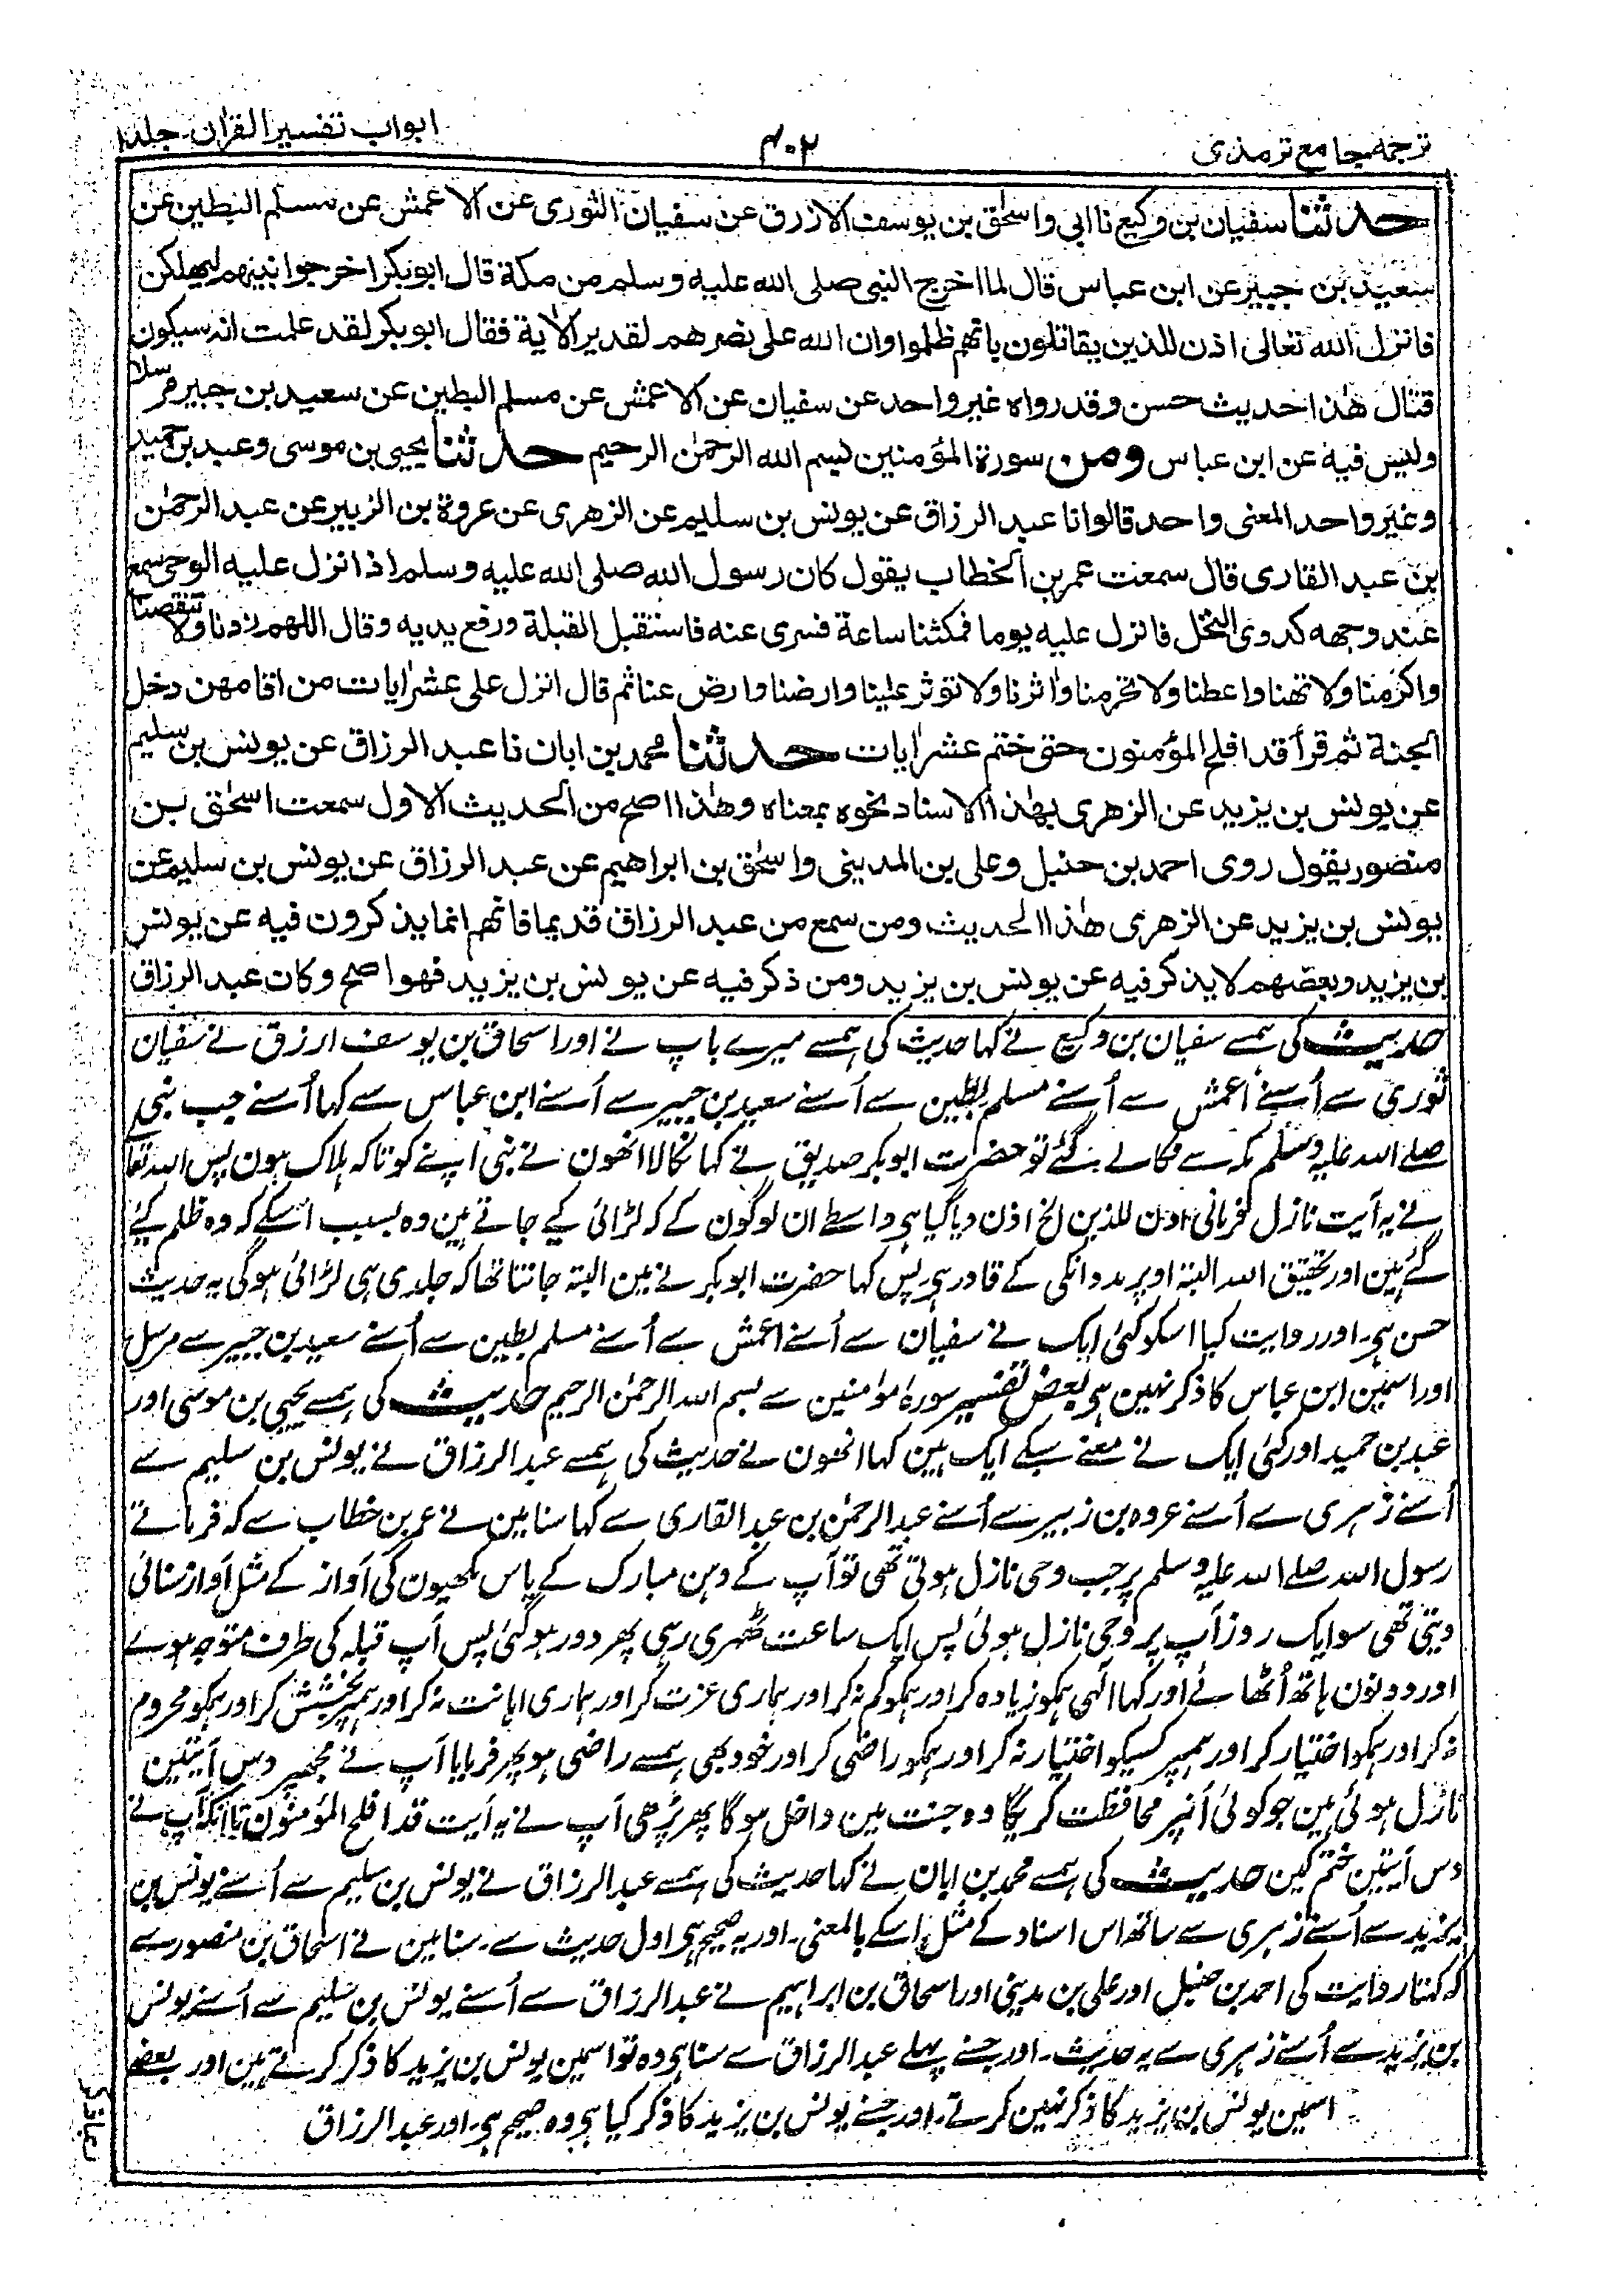 ترجمہ جامع ترمذی
۴۰۲
ابواب تفسیر القران جلد۲
حدثنا سفیان بن وکیع نا ابی واسحٰق بن یوسف الازرق عن سفیان الثوری عن الاعمش عن مسلم البطین عن
سعید بن جبیر عن ابن عباس قال لما اخرج النبی صلی الله علیه وسلم من مکة قال ابوبکر اخرجوا نبیهم لیهلکن
فانزل الله تعالی اذن للذین یقاتلون بانهم ظلموا وان الله علی نصرهم لقدیر الاٰیة فقال ابوبکر لقد علمت انه سیکون
قتال هٰذا حدیث حسن وقد رواه غیر واحد عن سفیان عن الاعمش عن مسلم البطین عن سعید بن جبیر مرسلا
ولیس فیه عن ابن عباس ومن سورة المؤمنین بسم الله الرحمٰن الرحیم حدثنا یحیی بن موسی وعبد بن حمید
وغیر واحد المعنی واحد قالوا نا عبد الرزاق عن یونس بن سلیم عن الزهری عن عروة بن الزبیر عن عبد الرحمٰن
بن عبد القاری قال سمعت عمر بن الخطاب یقول کان رسول الله صلی الله علیه وسلم اذا نزل علیه الوحی سمع
عند وجهه کدوی النحل فانزل علیه یوما فمکثنا ساعة فسری عنه فاستقبل القبلة ورفع یدیه وقال اللهم زدنا ولا تنقصنا
واکرمنا ولا تهنا واعطنا ولا تحرمنا واٰثرنا ولا توثر علینا وارضنا وارض عنا ثم قال انزل علی عشر اٰیات من اقامهن دخل
الجنة ثم قرأ قد افلح المؤمنون حتی ختم عشر اٰیات حدثنا محمد بن ابان نا عبد الرزاق عن یونس بن سلیم
عن یونس بن یزید عن الزهری بهٰذا الاسناد نحوه بمعناه وهٰذا اصح من الحدیث الاول سمعت اسحٰق بن
منصور یقول روی احمد بن حنبل وعلی بن المدینی واسحٰق بن ابراهیم عن عبد الرزاق عن یونس بن سلیم عن
یونس بن یزید عن الزهری هٰذا الحدیث ومن سمع من عبد الرزاق قدیما فانهم انما یذکرون فیه عن یونس
بن یزید وبعضهم لا یذکر فیه عن یونس بن یزید ومن ذکر فیه عن یونس بن یزید فهو اصح وکان عبد الرزاق
حدیث کی ہمسے سفیان بن وکیع نے کہا حدیث کی ہمسے میرے باپ نے اور اسحاق بن یوسف ارزق نے سفیان
ثوری سے اُسنے اعمش سے اُسنے مسلم بطین سے اُسنے سعید بن جبیر سے اُسنے ابن عباس سے کہا اُسنے جب نبی
صلے اللہ علیہ وسلم مکہ سے نکالے گئے تو حضرت ابوبکر صدیق نے کہا نکالا انھون نے نبی اپنے کو تاکہ ہلاک ہون پس اللہ تعا
نے یہ آیت نازل فرمائی اذن للذین الخ اذن دیا گیا ہی واسطے ان لوگون کے کہ لڑائی کیے جاتے ہین وہ بسبب اسکے کہ وہ ظلم کیے
گئے ہین اور تحقیق اللہ البتہ اوپر مدد انکی کے قادر ہی پس کہا حضرت ابوبکر نے مین البتہ جانتا تھا کہ جلدی ہی لڑائی ہوگی یہ حدیث
حسن ہی۔ اور روایت کیا اسکو کئی ایک نے سفیان سے اُسنے اعمش سے اُسنے مسلم بطین سے اُسنے سعید بن جبیر سے مرسل
اور اسمین ابن عباس کا ذکر نہین ہی بعض تفسیر سورۂ مؤمنین سے بسم اللہ الرحمٰن الرحیم حدیث کی ہمسے یحیی بن موسی اور
عبد بن حمید اور کئی ایک نے معنے سبکے ایک ہین کہا انھون نے حدیث کی ہمسے عبد الرزاق نے یونس بن سلیم سے
اُسنے زہری سے اُسنے عروہ بن زبیر سے اُسنے عبد الرحمٰن بن عبد القاری سے کہا سنا مین نے عمر بن خطاب سے کہ فرماتے
رسول اللہ صلے اللہ علیہ وسلم پر جب وحی نازل ہوتی تھی تو آپ کے دہن مبارک کے پاس مکھیون کی آواز کے مثل آواز سنائی
دیتی تھی سو ایک روز آپ پر وحی نازل ہوئی پس ایک ساعت ٹھہری رہی پھر دور ہو گئی پس آپ قبلہ کی طرف متوجہ ہوے
اور دونون ہاتھ اُٹھائے اور کہا الٰہی ہمکو زیادہ کر اور ہمکو کم نہ کر اور ہماری عزت کر اور ہماری اہانت نہ کر اور ہمپر بخشش کر اور ہمکو محروم
نہ کر اور ہمکو اختیار کر اور ہمپر کسیکو اختیار نہ کر اور ہمکو راضی کر اور خود بھی ہمسے راضی ہو پھر فرمایا آپ نے مجھپر دس آیتین
نازل ہوئی ہین جو کوئی اُنپر محافظت کریگا وہ جنت مین داخل ہوگا پھر پڑھی آپ نے یہ آیت قد افلح المؤمنون تا آنکہ آپ نے
دس آیتین ختم کین حدیث کی ہمسے محمد بن ابان نے کہا حدیث کی ہمسے عبد الرزاق نے یونس بن سلیم سے اُسنے یونس بن
یزید سے اُسنے زہری سے ساتھ اس اسناد کے مثل اسکے بالمعنی۔ اور یہ صحیح ہی اول حدیث سے۔ سنا مین نے اسحاق بن منصور سے
کہ کہتا روایت کی احمد بن حنبل اور علی بن مدینی اور اسحاق بن ابراہیم نے عبد الرزاق سے اُسنے یونس بن سلیم سے اُسنے یونس
بن یزید سے اُسنے زہری سے یہ حدیث۔ اور جسنے پہلے عبد الرزاق سے سنا ہی وہ تو اسمین یونس بن یزید کا ذکر کرتے ہین اور بعضے
اسمین یونس بن یزید کا ذکر نہین کرتے۔ اور جسنے یونس بن یزید کا ذکر کیا ہی وہ صحیح ہی۔ اور عبد الرزاق